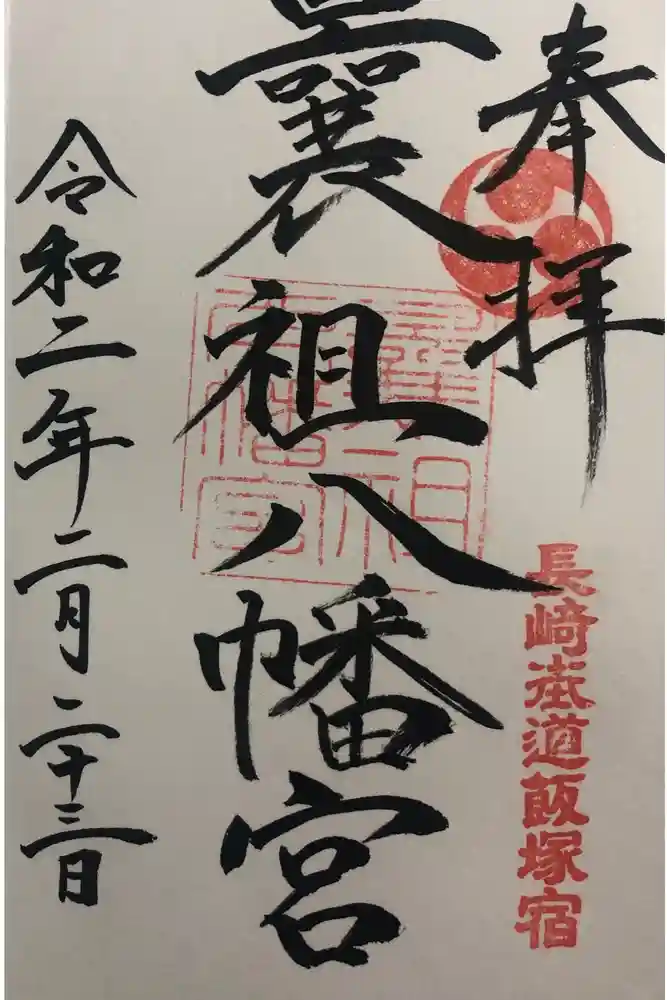 奉拝
長﨑街道飯塚宿
曩祖八幡宮
曩祖
八幡宮
令和二年二月二十三日